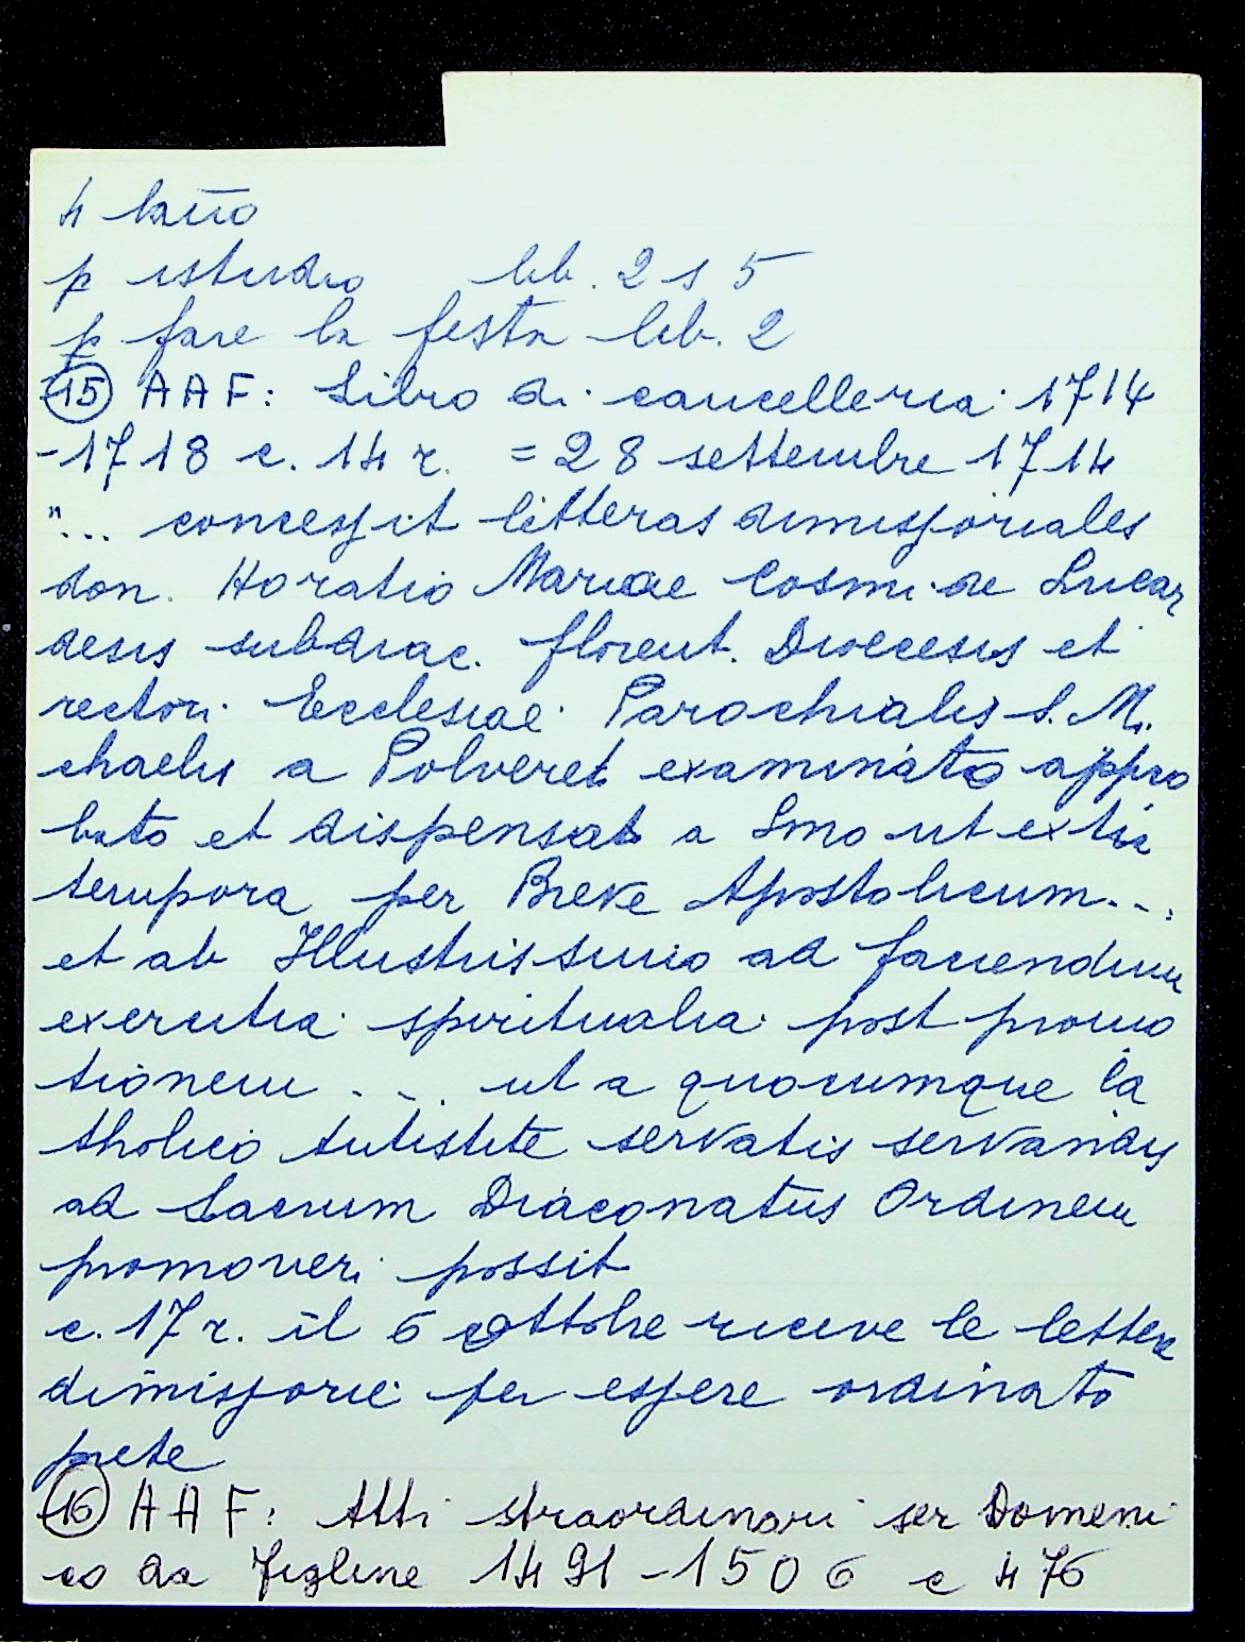 4
p istudio lib. 2 s 5
p fare la festa lib. 2
15 AAF: Libro di cancelleria 1714
-1718 c. 14 r. = 28 settembre 1714
"... concessit litteras dimissoriales
don. Horatio Mariae Cosmi de Lucar
desis subdiac. florent. Diocesis et
rectori Ecclesiae Parochialis S. Mi
chaelis a Polveret examinato appro
bato et dispensat a Smo ut extra
tempora per Breve Apostolicum...
et ab Illustrissimo ad faciendum
exercitia spiritualia post promo
tionem ... ut a quocumque Ca
tholico Antistite servatis servandis
ad Sacrum Diaconatus Ordinem
promoveri possit
c. 17 r. il 6 ottobre riceve le lettere
dimissorie per essere ordinato
prete
16 AAF: Atti straordinari ser Domeni
co da Figline 1491-1506 c 476